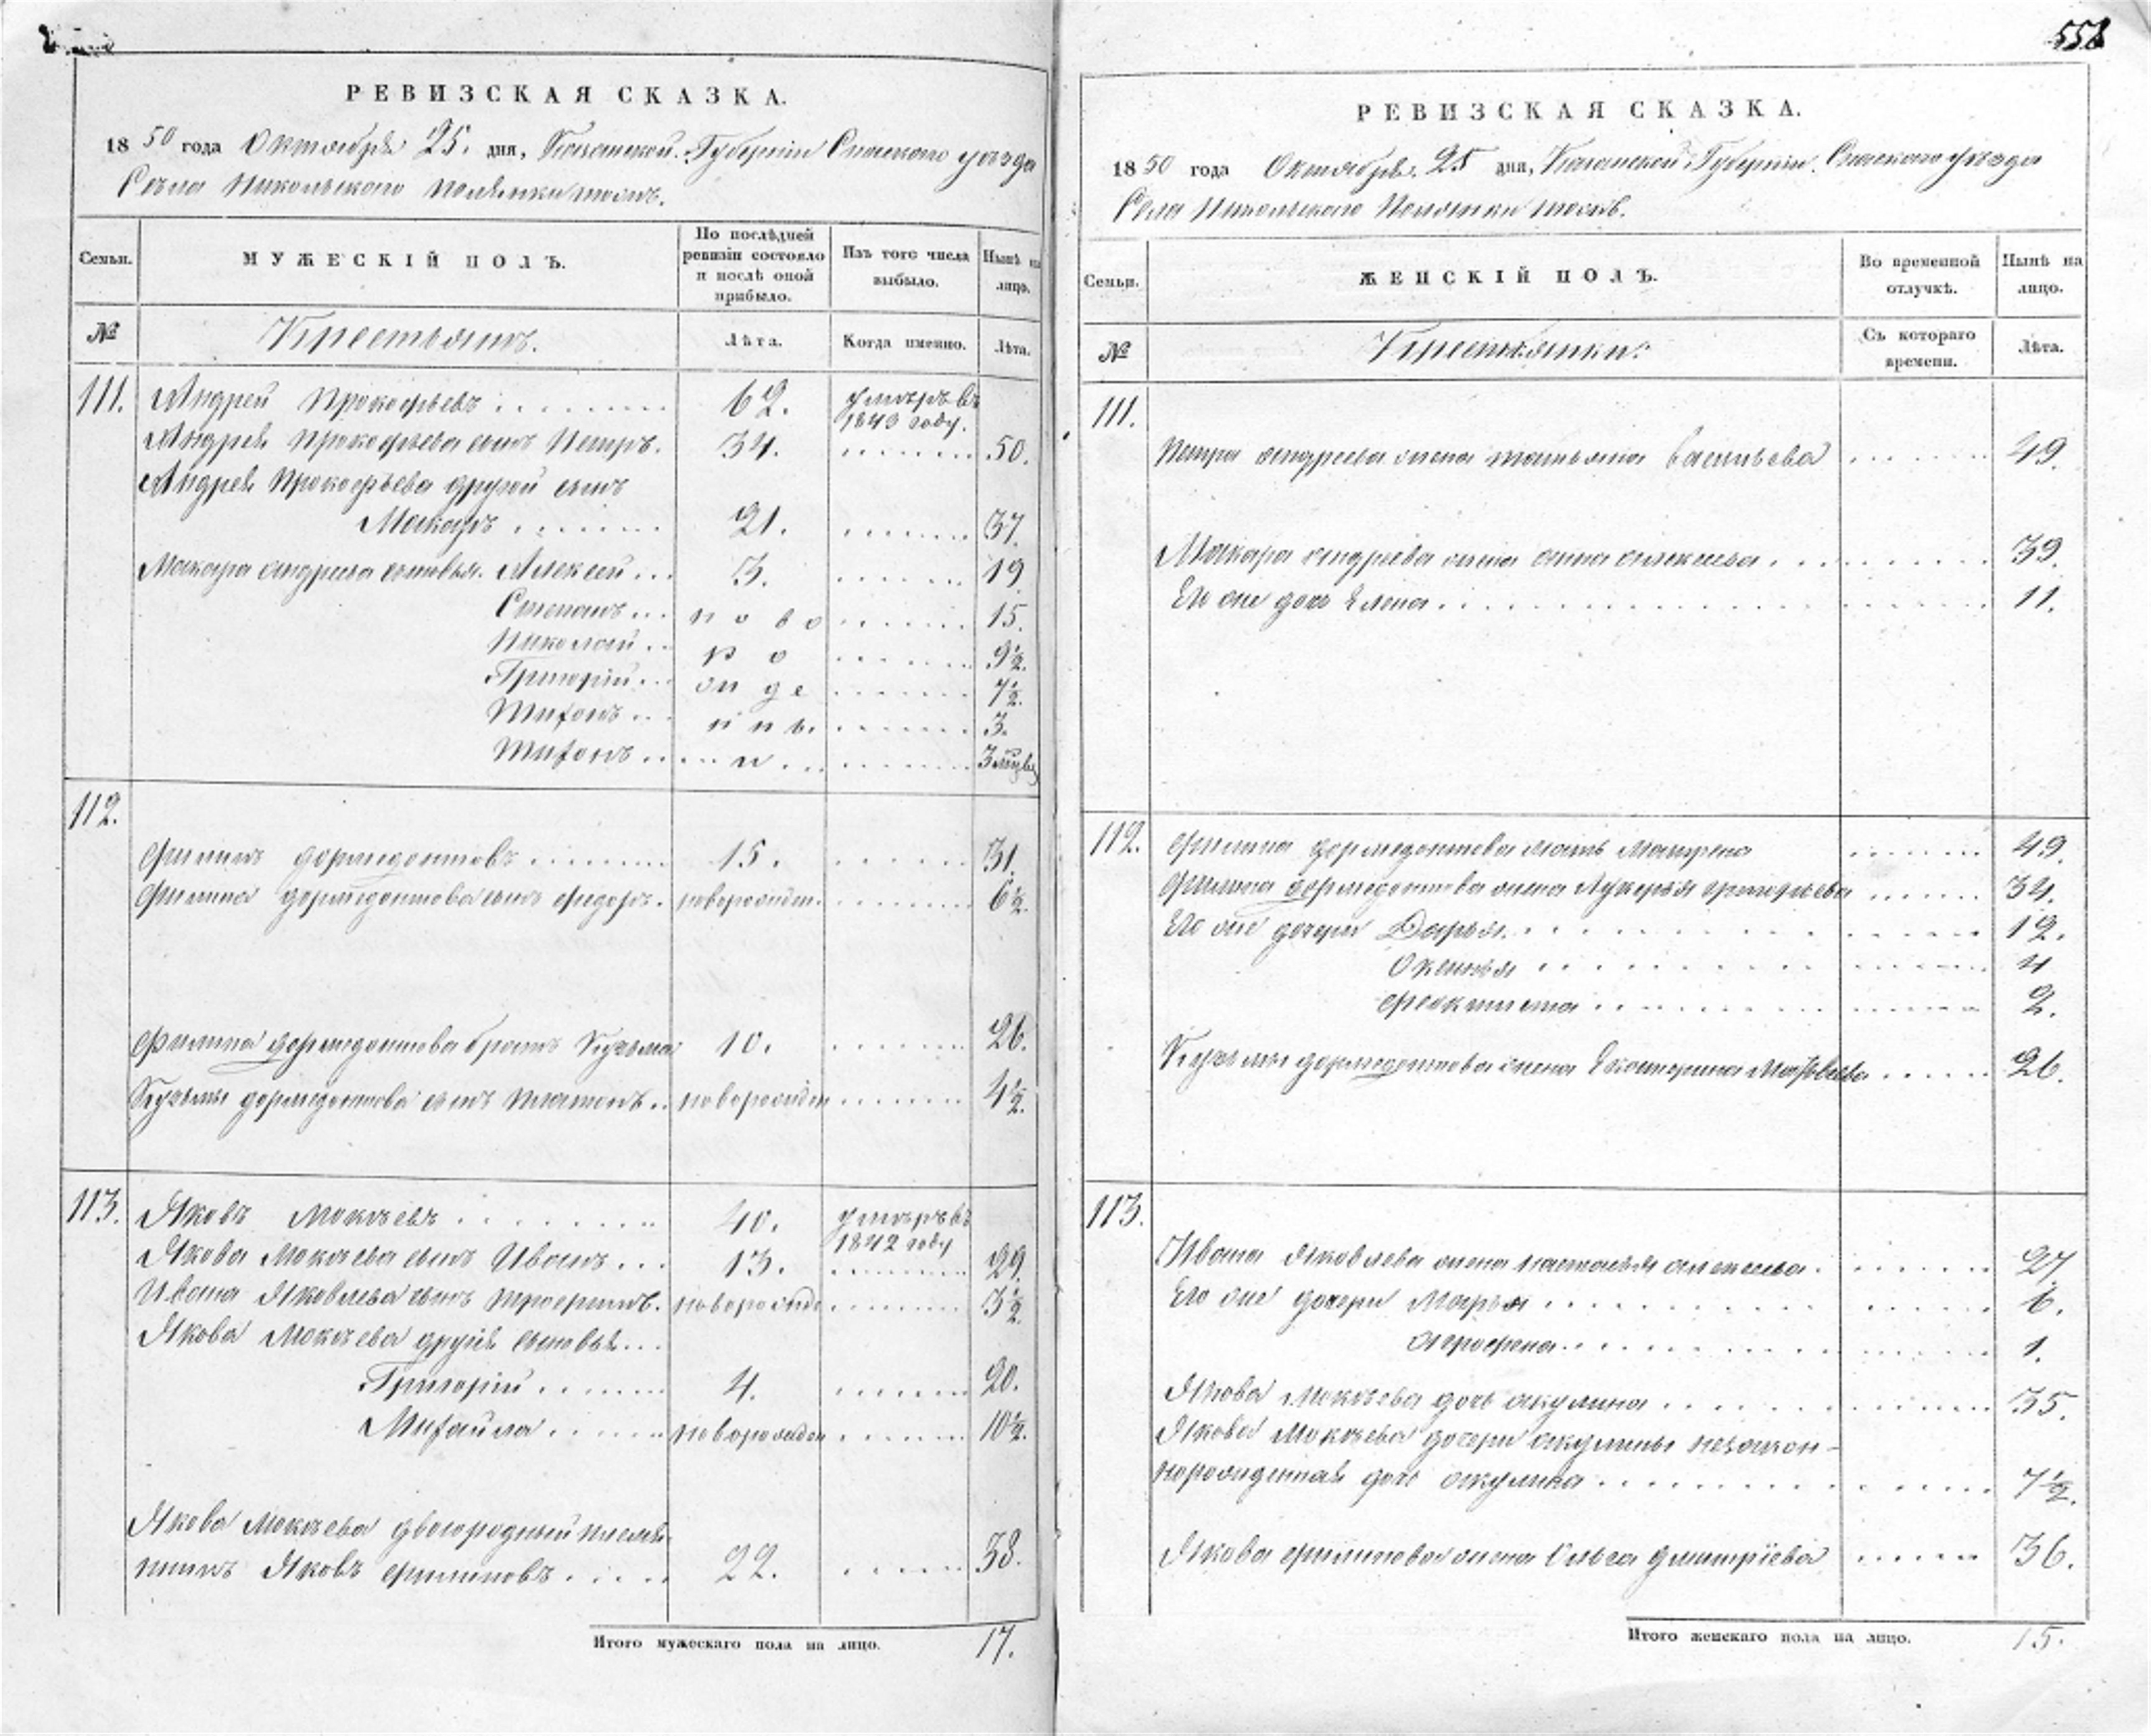 558
РЕВИЗСКАЯ СКАЗКА.
1850 года Октября 25. дня, Казанской Губернiи Спаскаго уѣзда
Села Никольскаго Полянки тожъ.
Семьи.
МУЖЕСКІЙ ПОЛЪ.
По послѣдней ревизіи состояло и послѣ оной прибыло.
Изъ того числа выбыло.
Нынѣ на лицо.
№
Крестьянъ.
Лѣта.
Когда именно.
Лѣта.
111. Андрей Прокофьевъ . . . . 62. умеръ въ 1843 году.
Андрея Прокофьева сынъ Петръ. 34. . . . . 50.
Андрея Прокофьева другой сынъ
Макаръ . . . . 21. . . . . 37.
Макара андреева сыновья. Алексей . . . 3. . . . . 19
Степанъ . . . ново . . . . 15.
Николай . . . ро . . . . 9½.
Григорiй . . . жде . . . . 7½.
Тихонъ . . . нны . . . . 3.
Тихонъ . . . . . . . . 3 мѣсяцъ
112.
филипъ дормедонтовъ . . . . 15. . . . . 31.
филипа дормедонтова сынъ федоръ. новорожден. . . . . 6½.
филипа дормедонтова братъ Кузьма 10. . . . . 26.
Кузьмы дормедонтова сынъ платонъ . . новорожден . . . . 4½.
113. Яковъ Мокѣевъ . . . . 40. умеръ въ 1842 году
Якова Мокѣева сынъ Иванъ . . . 13. . . . . 29.
Ивана Яковлева сынъ трофимъ. новорожде . . . . 3½.
Якова Мокѣева другiя сыновья . . .
Григорiй . . . . 4. . . . . 20.
Михайла . . . . новорожден . . . . 10½.
Якова Мокѣева двоюродный племян-
никъ Яковъ филиповъ . . . . 22. . . . . 38.
Итого мужескаго пола на лицо. 17.
РЕВИЗСКАЯ СКАЗКА.
1850 года Октября 25 дня, Казанской Губернiи. Спаскаго уѣзда
Села Никольскаго Полянки тожъ.
Семьи.
ЖЕНСКІЙ ПОЛЪ.
Во временной отлучкѣ.
Нынѣ на лицо.
№
Крестьянки:
Съ котораго времени.
Лѣта.
111.
Петра андреева жена татьяна васильева . . . . 49.
Макара андреева жена анна алексеева . . . . 39.
Его же дочь Елена . . . . 11.
112. филипа дормедонтова мать Матрена . . . . 49.
филипа дормедонтова жена Лукерья григорьева . . . . 34.
Его же дочери Дарья . . . . 12.
Оксинья . . . . 4
феоктиста . . . . 2.
Кузьмы дормедонтова жена Екатерина Матвеева . . . . 26.
113.
Ивана Яковлева жена настасья алексеева . . . . 27.
Его же дочери Марья . . . . 6.
агрофена . . . . 1.
Якова Мокѣева дочь акулина . . . . 35.
Якова Мокѣева дочери акулины незакон-
норожденная дочь акулина . . . . 7½.
Якова филипова жена Ольга дмитрiева . . . . 36.
Итого женскаго пола на лицо. 15.